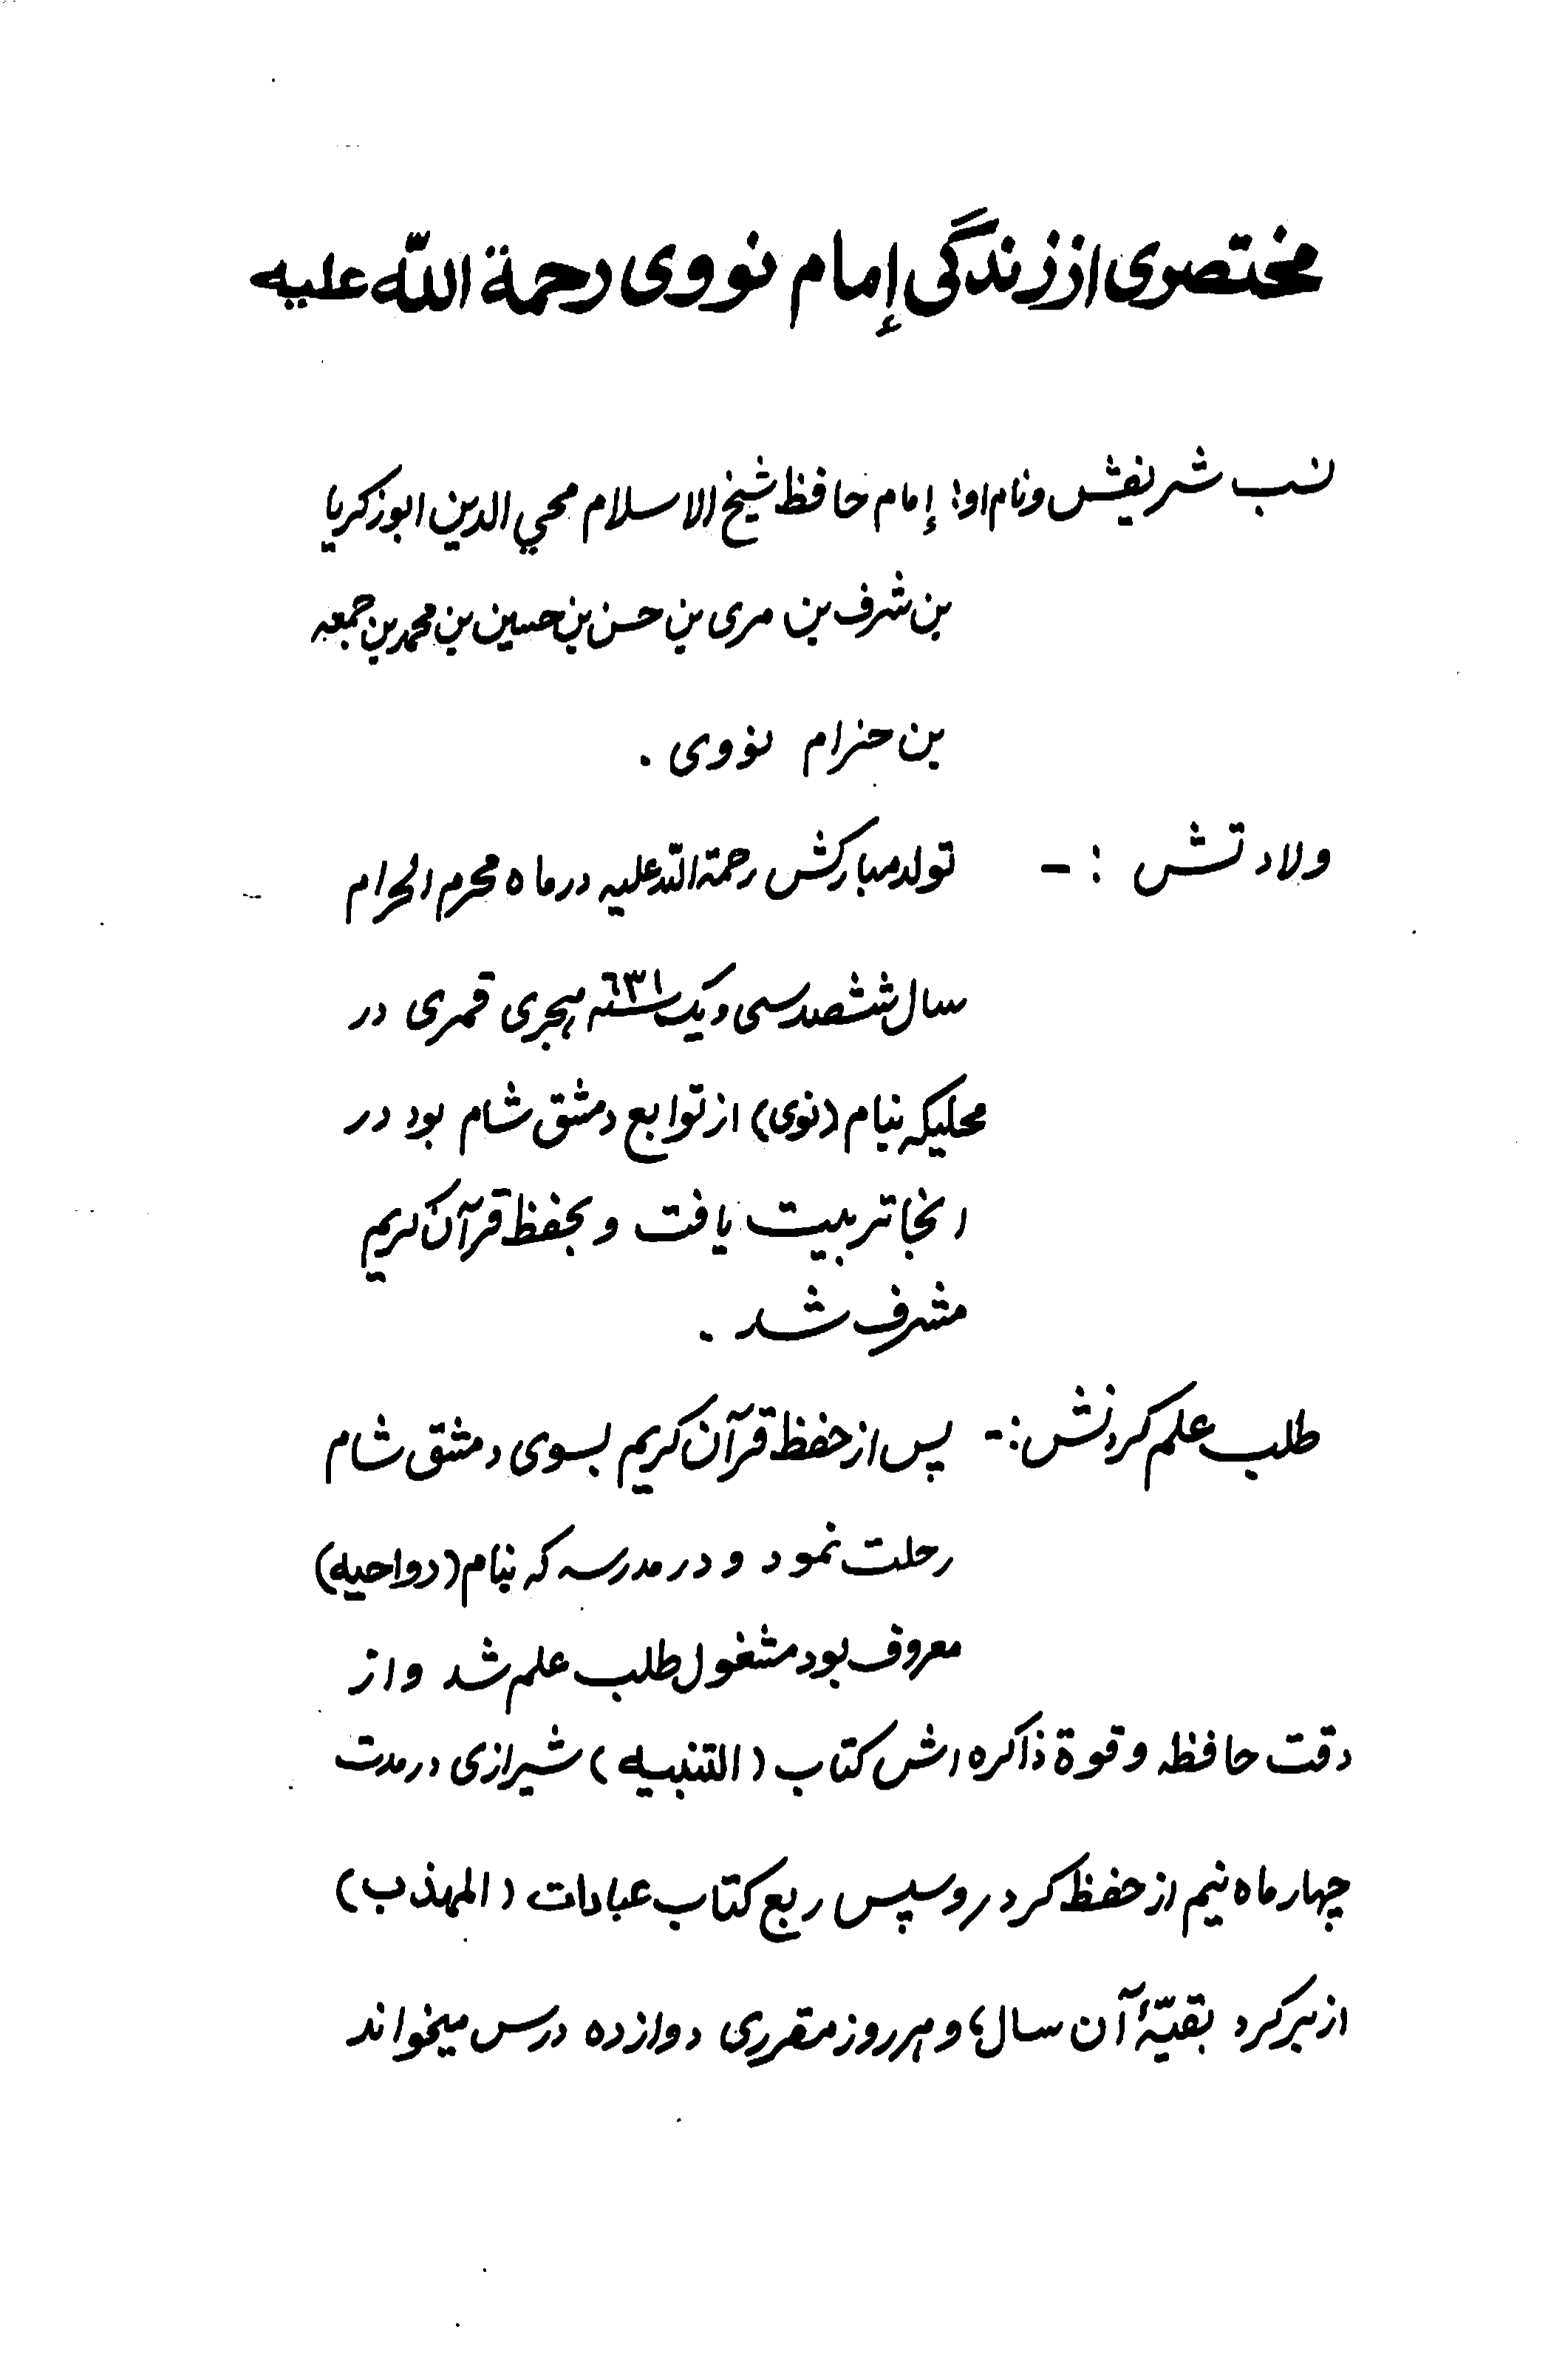 مختصری از زندگی إمام نووی رحمة الله علیه
نسب شریفش ونام او: إمام حافظ شیخ الاسلام محي الدین ابوزکریا
بن شرف بن مری بن حسن بن حسین بن محمد بن جمعه
بن حزام نووی .
ولادتش :- تولد مبارکش رحمة الله علیه در ماه محرم الحرام
سال ششصد سی ویک سنه ٦٣١ هجری قمری در
محلیکه بنام (نوی) از توابع دمشق شام بود در
انجا تربیت یافت و بحفظ قرآن کریم
مشرف شد .
طلب علم کردنش :- پس از حفظ قرآن کریم بسوی دمشق شام
رحلت نمود و در مدرسه که بنام (رواحیه)
معروف بود مشغول طلب علم شد واز
دقت حافظه وقوة ذاکره اش کتاب (التنبیه) شیرازی در مدت
چهار ماه نیم از حفظ کرد، وسپس ربع کتاب عبادات (المهذب)
از برکرد بقیّهٔ آن سال؛ و هر روز مقرری دوازده درس میخواند